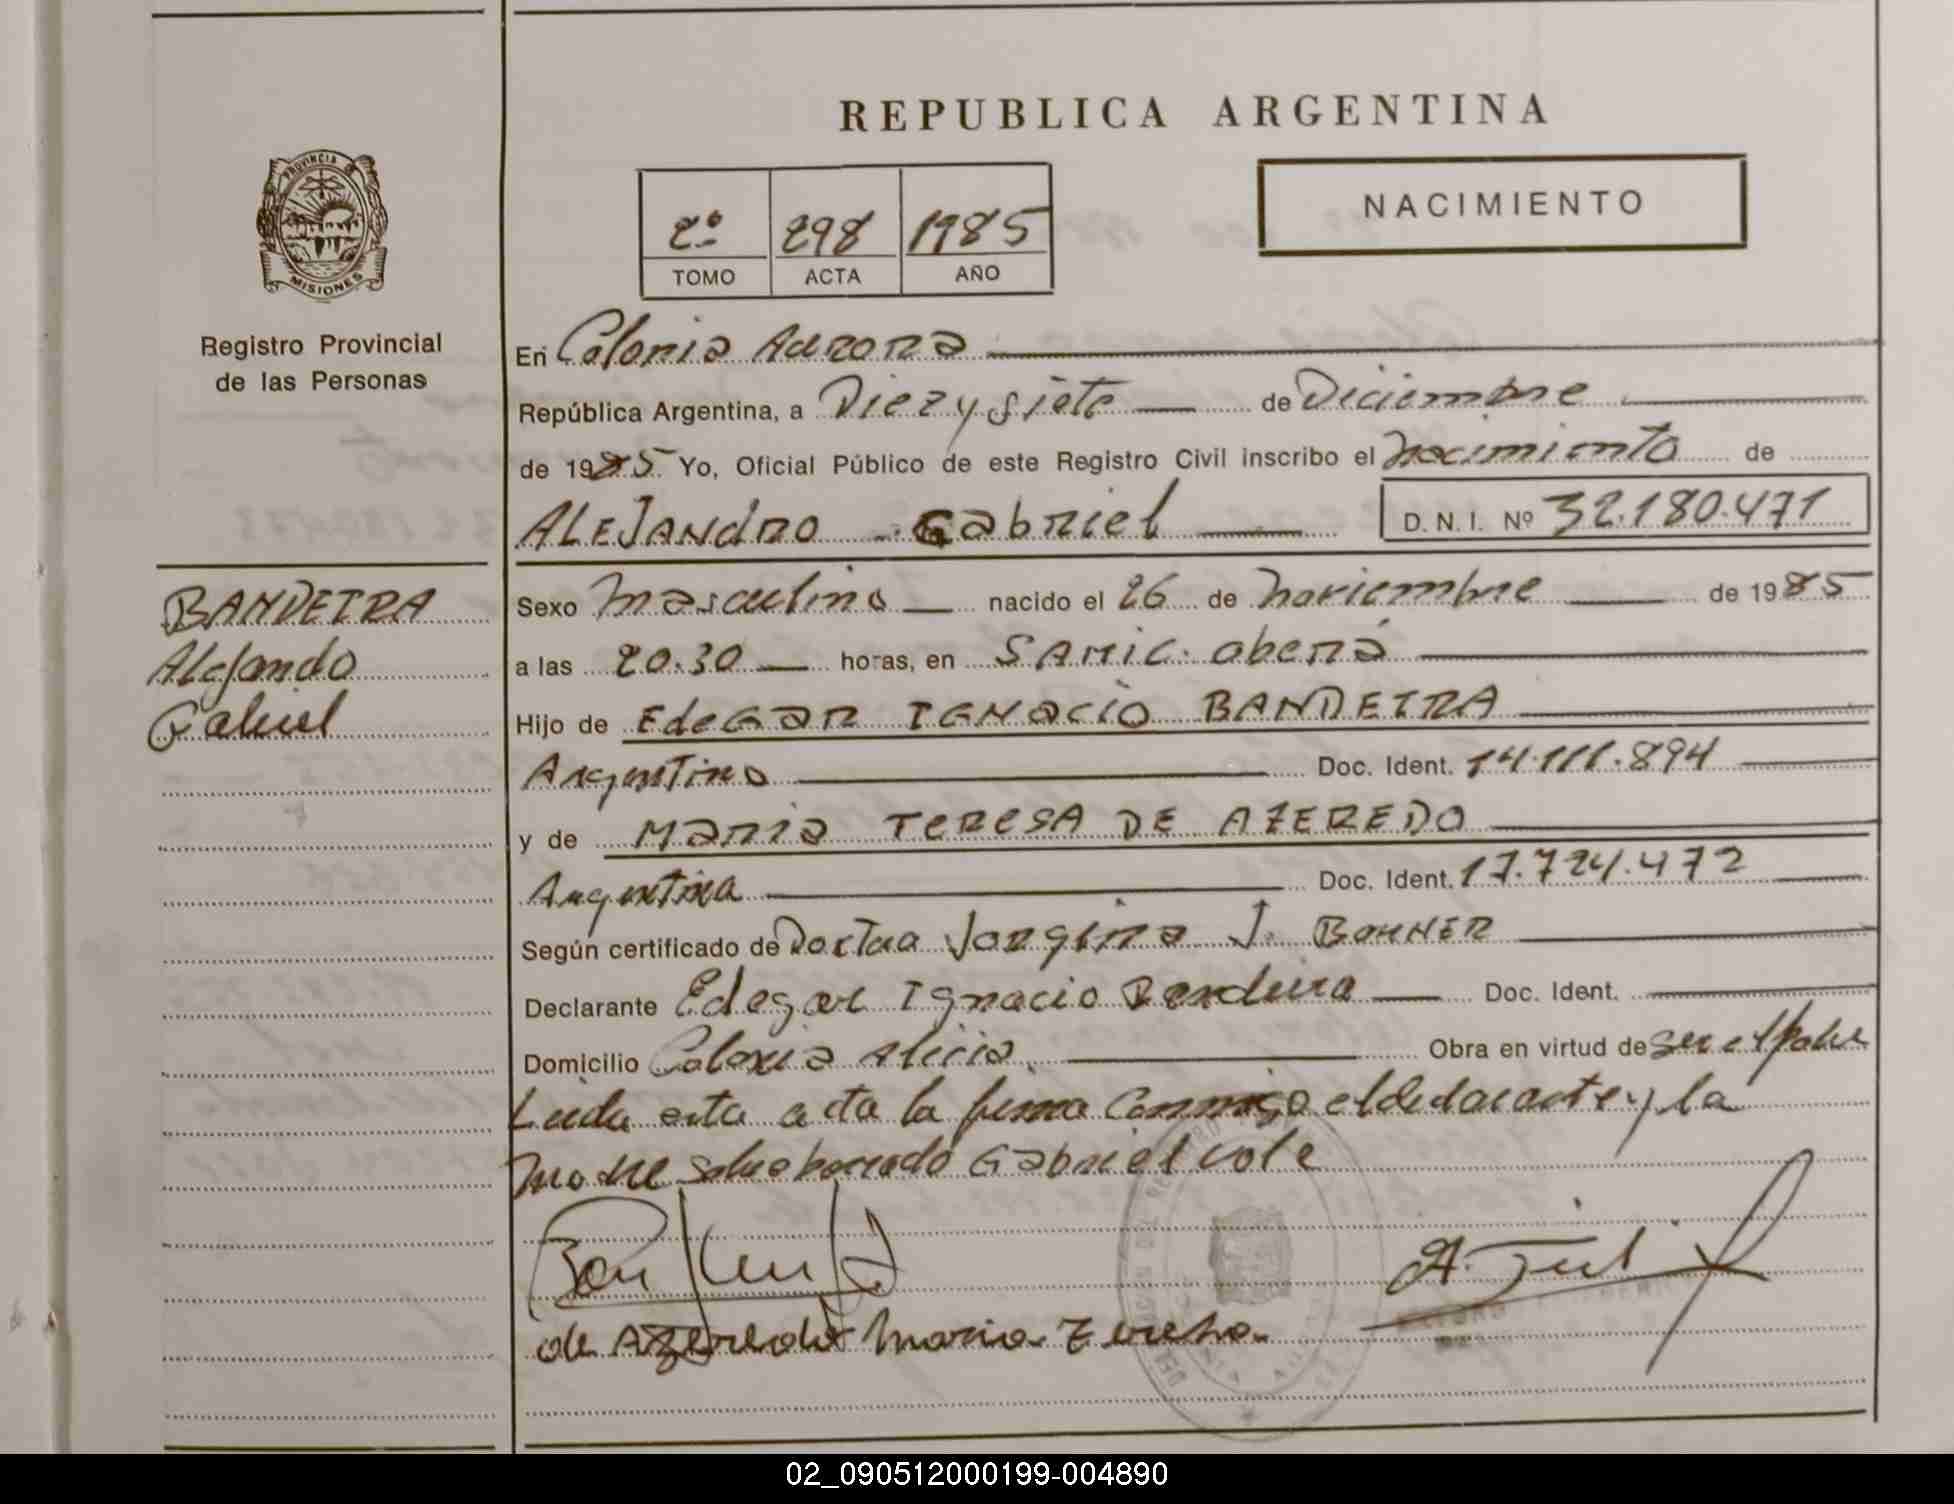 REPUBLICA ARGENTINA
PROVINCIA
MISIONES
Registro Provincial
de las Personas
2º 298 1985
TOMO ACTA AÑO
NACIMIENTO
En Colonia Aurora
República Argentina, a Diez y siete de Diciembre
de 1985 Yo, Oficial Público de este Registro Civil inscribo el nacimiento de
ALEJANDRO Gabriel D.N.I. Nº 32.180.471
BANDEIRA
Alejandro
Gabriel
Sexo masculino nacido el 26 de noviembre de 1985
a las 20.30 horas, en SAMIC. oberá
Hijo de EdeGar IGNacio BANDEIRA
Argentino Doc. Ident. 14.111.894
y de Maria TERESA DE AZEREDO
Argentina Doc. Ident. 17.724.472
Según certificado de Doctora Jorgina J. BOHNER
Declarante Edegar Ignacio Bandeira Doc. Ident.
Domicilio Colonia Alicia Obra en virtud de ser el padre
Leida esta acta la firma conmigo el declarante y la
madre sobre borrado Gabriel vale
de Azeredo Maria Tereza
02_090512000199-004890